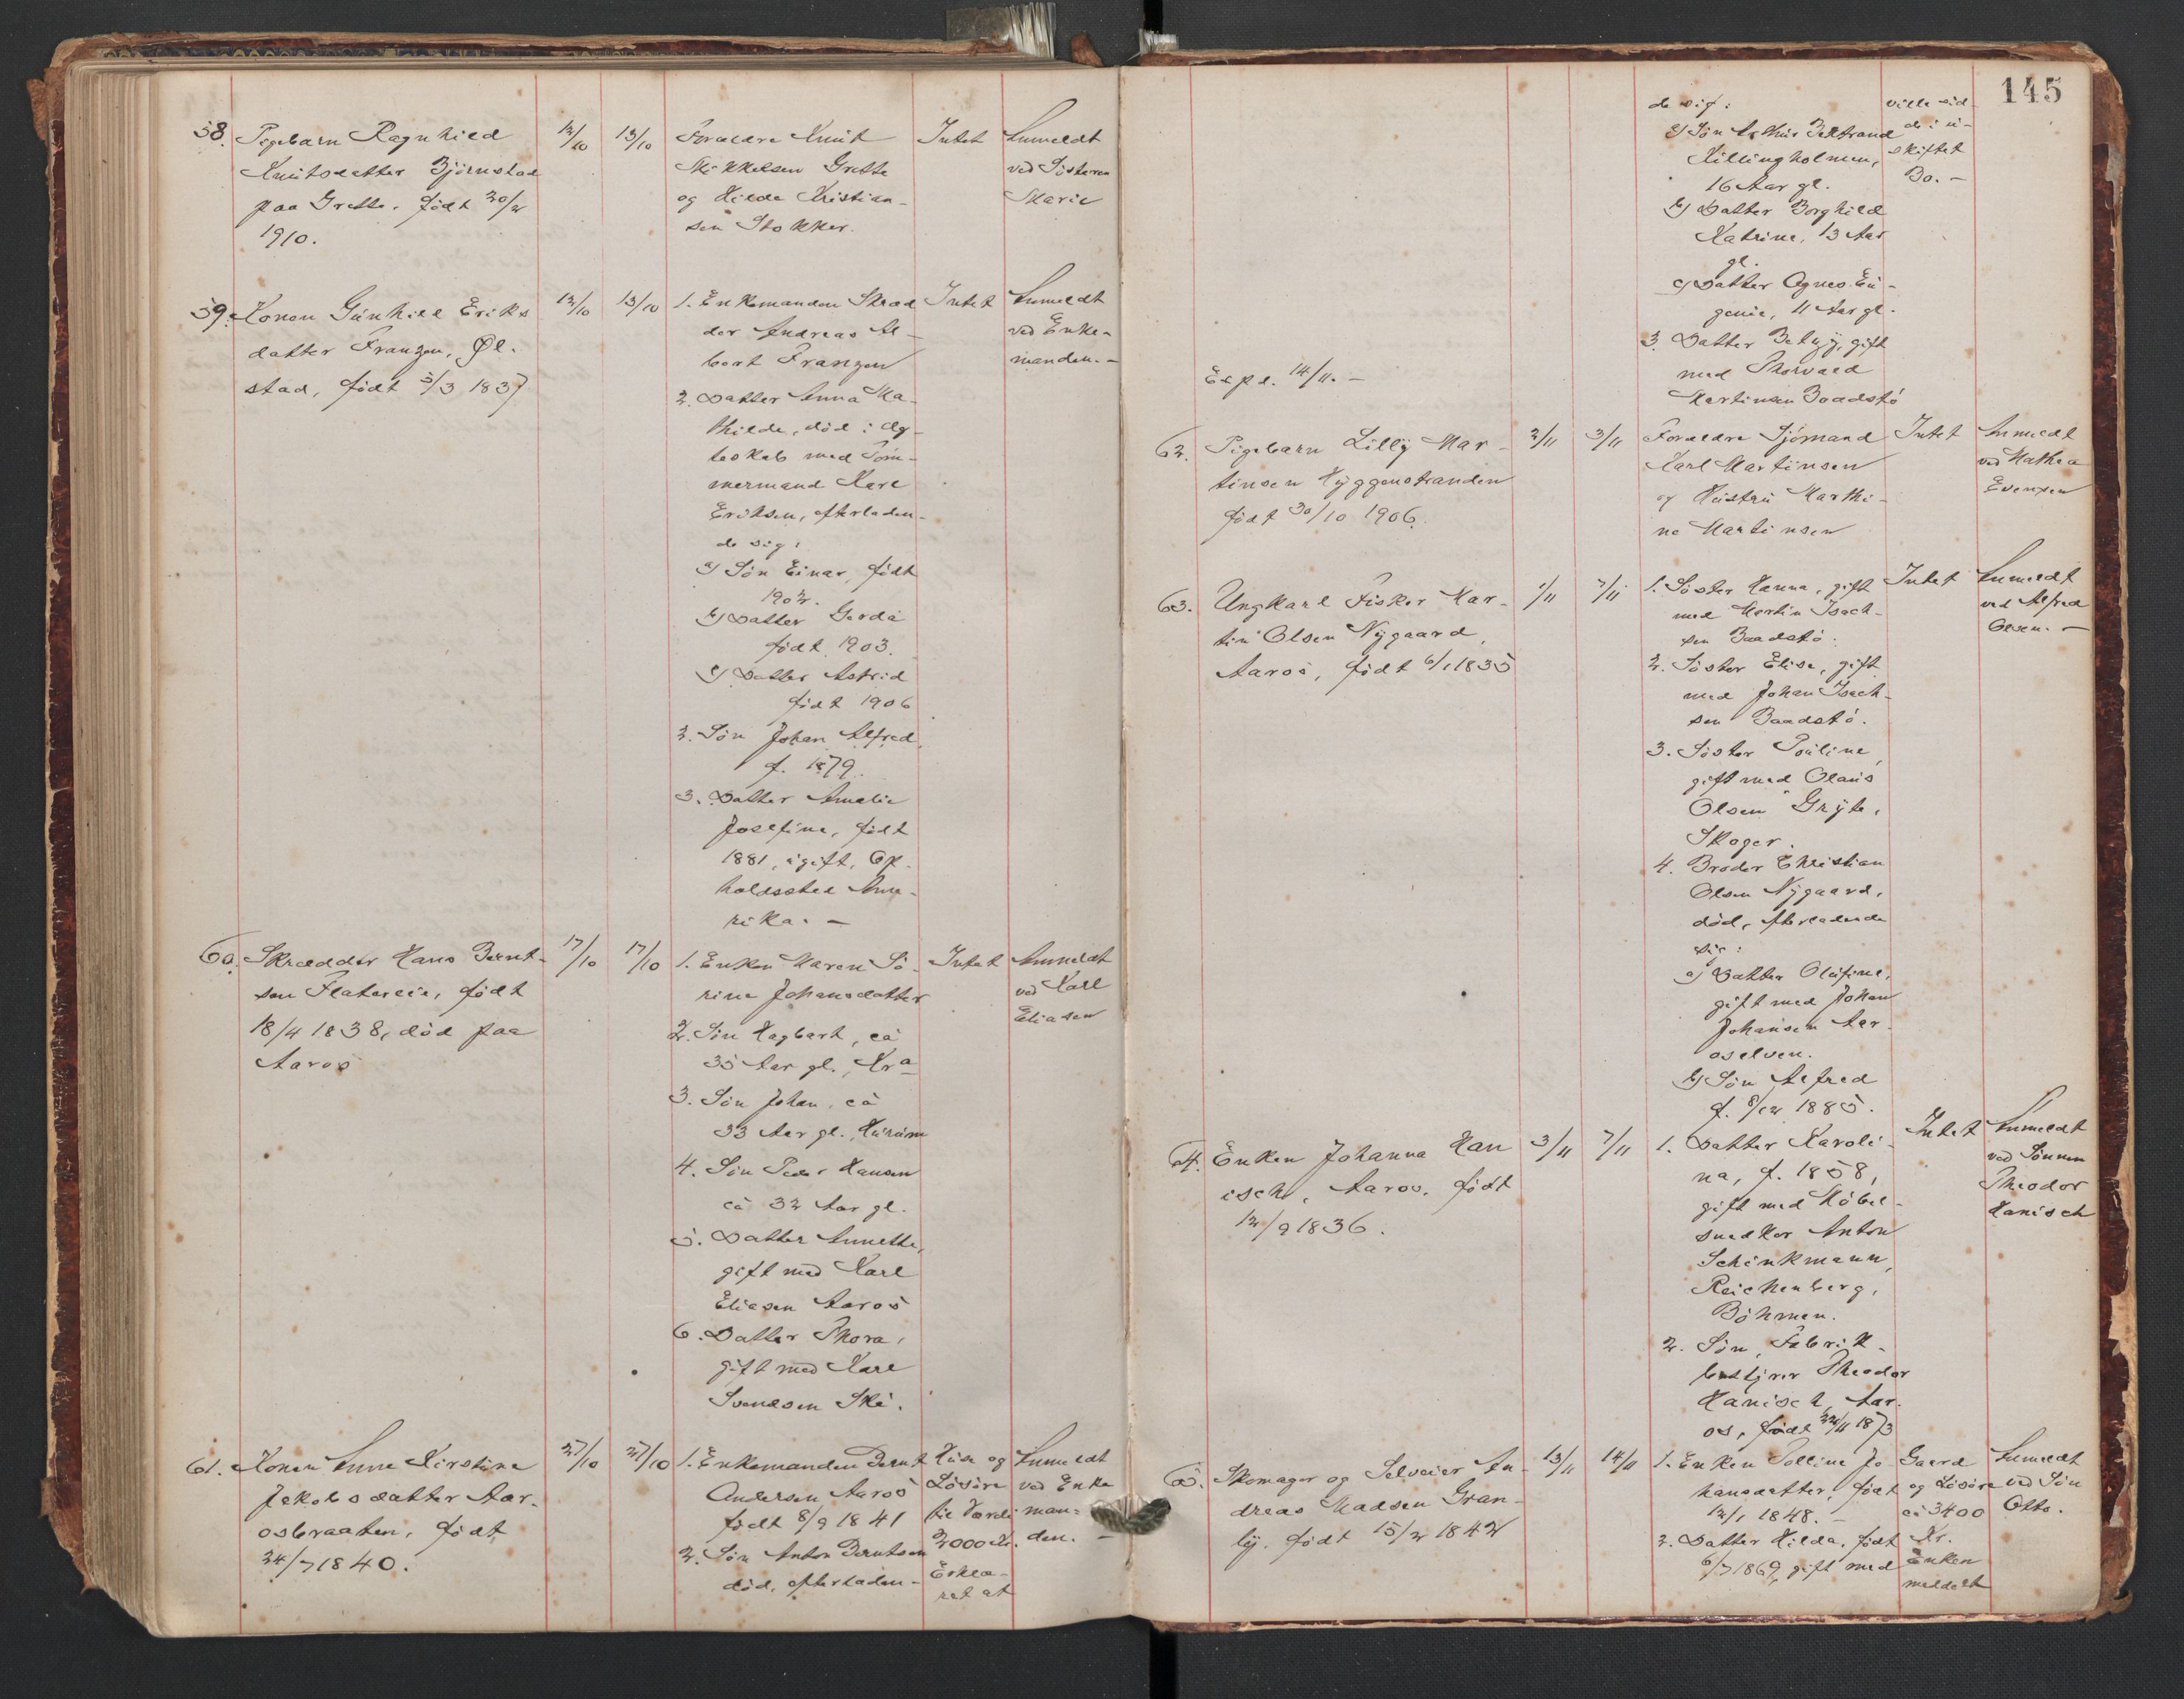 58. Pigebarn Ragnhild
Knutsdatter Björnstad
paa Grette, født 20/2
1910.
12/10
13/10
Forældre Knut
Mikkelsen Grette
og Hilda Kristian-
sen Stokker.
Intet
Anmeldt
ved Søsteren
Marie
59. Konen Gunhild Eriks
datter Franzen, Øl-
stad, født 5/3 1837
12/10
13/10
1. Enkemanden Skræd
der Andreas Al-
bert Franzen
2. Datter Anna Ma-
thilde, død i Æg-
teskab med Tøm-
mermand Karl
Eriksen, efterladen-
de sig:
a) Søn Einar, født
1902.
b) Datter Gerda
født 1903.
c) Datter Astrid
født 1906
2. Søn Johan Alfred,
f. 1879.
3. Datter Amalie
Josefine, født
1881, ugift, Op-
holdssted Ame-
rika. -
Intet
Anmeldt
ved Enke-
manden. -
60. Skrædder Hans Bernt-
sen Flatereie, født
18/4 1838, død paa
Aaros
17/10
17/10
1. Enken Maren Sø-
rine Johansdatter
2. Søn Hagbart, ca
35 Aar gl., Kra
3. Søn Johan, ca
33 Aar gl., Hurum
4. Søn Peder Hansen
ca 32 Aar gl.
5. Datter Annette,
gift med Karl
Eliasen Aaros
6. Datter Thora,
gift med Karl
Svendsen Ski.
Intet
Anmeldt
ved Karl
Eliasen
61. Konen Anne Kirstine
Jakobsdatter Aar-
osbraaten, født
24/7 1840.
27/10
27/10
1. Enkemanden Bernt
Andersen Aaros
født 8/9 1841
2. Søn Anton Berntsen
død, efterladen-
Hus og
Løsøre
til Værdi
2000 Kr.
Erklæ-
ret at
Anmeldt
ved Enke
man-
den. -
145
Expd. 14/11. -
de sig:
a) Søn Arthur Bertrand
Killingholmen,
16 Aar gl.
b) Datter Borghild
Katrine, 13 Aar
gl.
c) Datter Agnes Eu-
genie, 11 Aar gl.
3. Datter Betzy, gift
med Thorvald
Martinsen Baadstø
ville sid-
de i u-
skiftet
Bo. -
62. Pigebarn Lilly Mar-
tinsen Hyggenstranden
født 30/10 1906.
2/11
3/11
Forældre Sjømand
Karl Martinsen
og Hustru Marthi-
ne Martinsen
Intet
Anmeldt
ved Mathea
Evensen
63. Ungkarl Fisker Mar-
tin Olsen Nygaard,
Aaros, født 6/1 1835
1/11
7/11
1. Søster Hanna, gift
med Martin Isach-
sen Baadstø.
2. Søster Elise, gift
med Johan Isach-
sen Baadstø.
3. Søster Pauline,
gift med Olaus
Olsen Gryte,
Skoger.
4. Broder Christian
Olsen Nygaard,
død, efterladende
sig:
a) Datter Olufine,
gift med Johan
Johansen Aar-
oselven.
b) Søn Alfred
f. 8/12 1885.
Intet
Anmeldt
ved Alfred
Olsen. -
64. Enken Johanna Han
isch, Aaros, født
12/9 1836.
3/11
7/11
1. Datter Karoli-
na, f. 1858,
gift med Møbel-
snedker Anton
Schinkmann,
Reichenberg,
Böhmen.
2. Søn, Fabrik-
bestyrer Theodor
Hanisch, Aar-
os, født 22/11 1873
Intet
Anmeldt
ved Sønnen
Theodor
Hanisch
65. Skomager og Selveier An-
dreas Madsen Gran-
ly, født 15/2 1842
13/11
14/11
1. Enken Polline Jo-
hansdatter, født
12/1 1848. -
2. Datter Hilda, født
6/7 1869, gift med
Gaard
og Løsøre
ca 3400
Kr.
Enken
meddelt
Anmeldt
ved Søn
Otto.